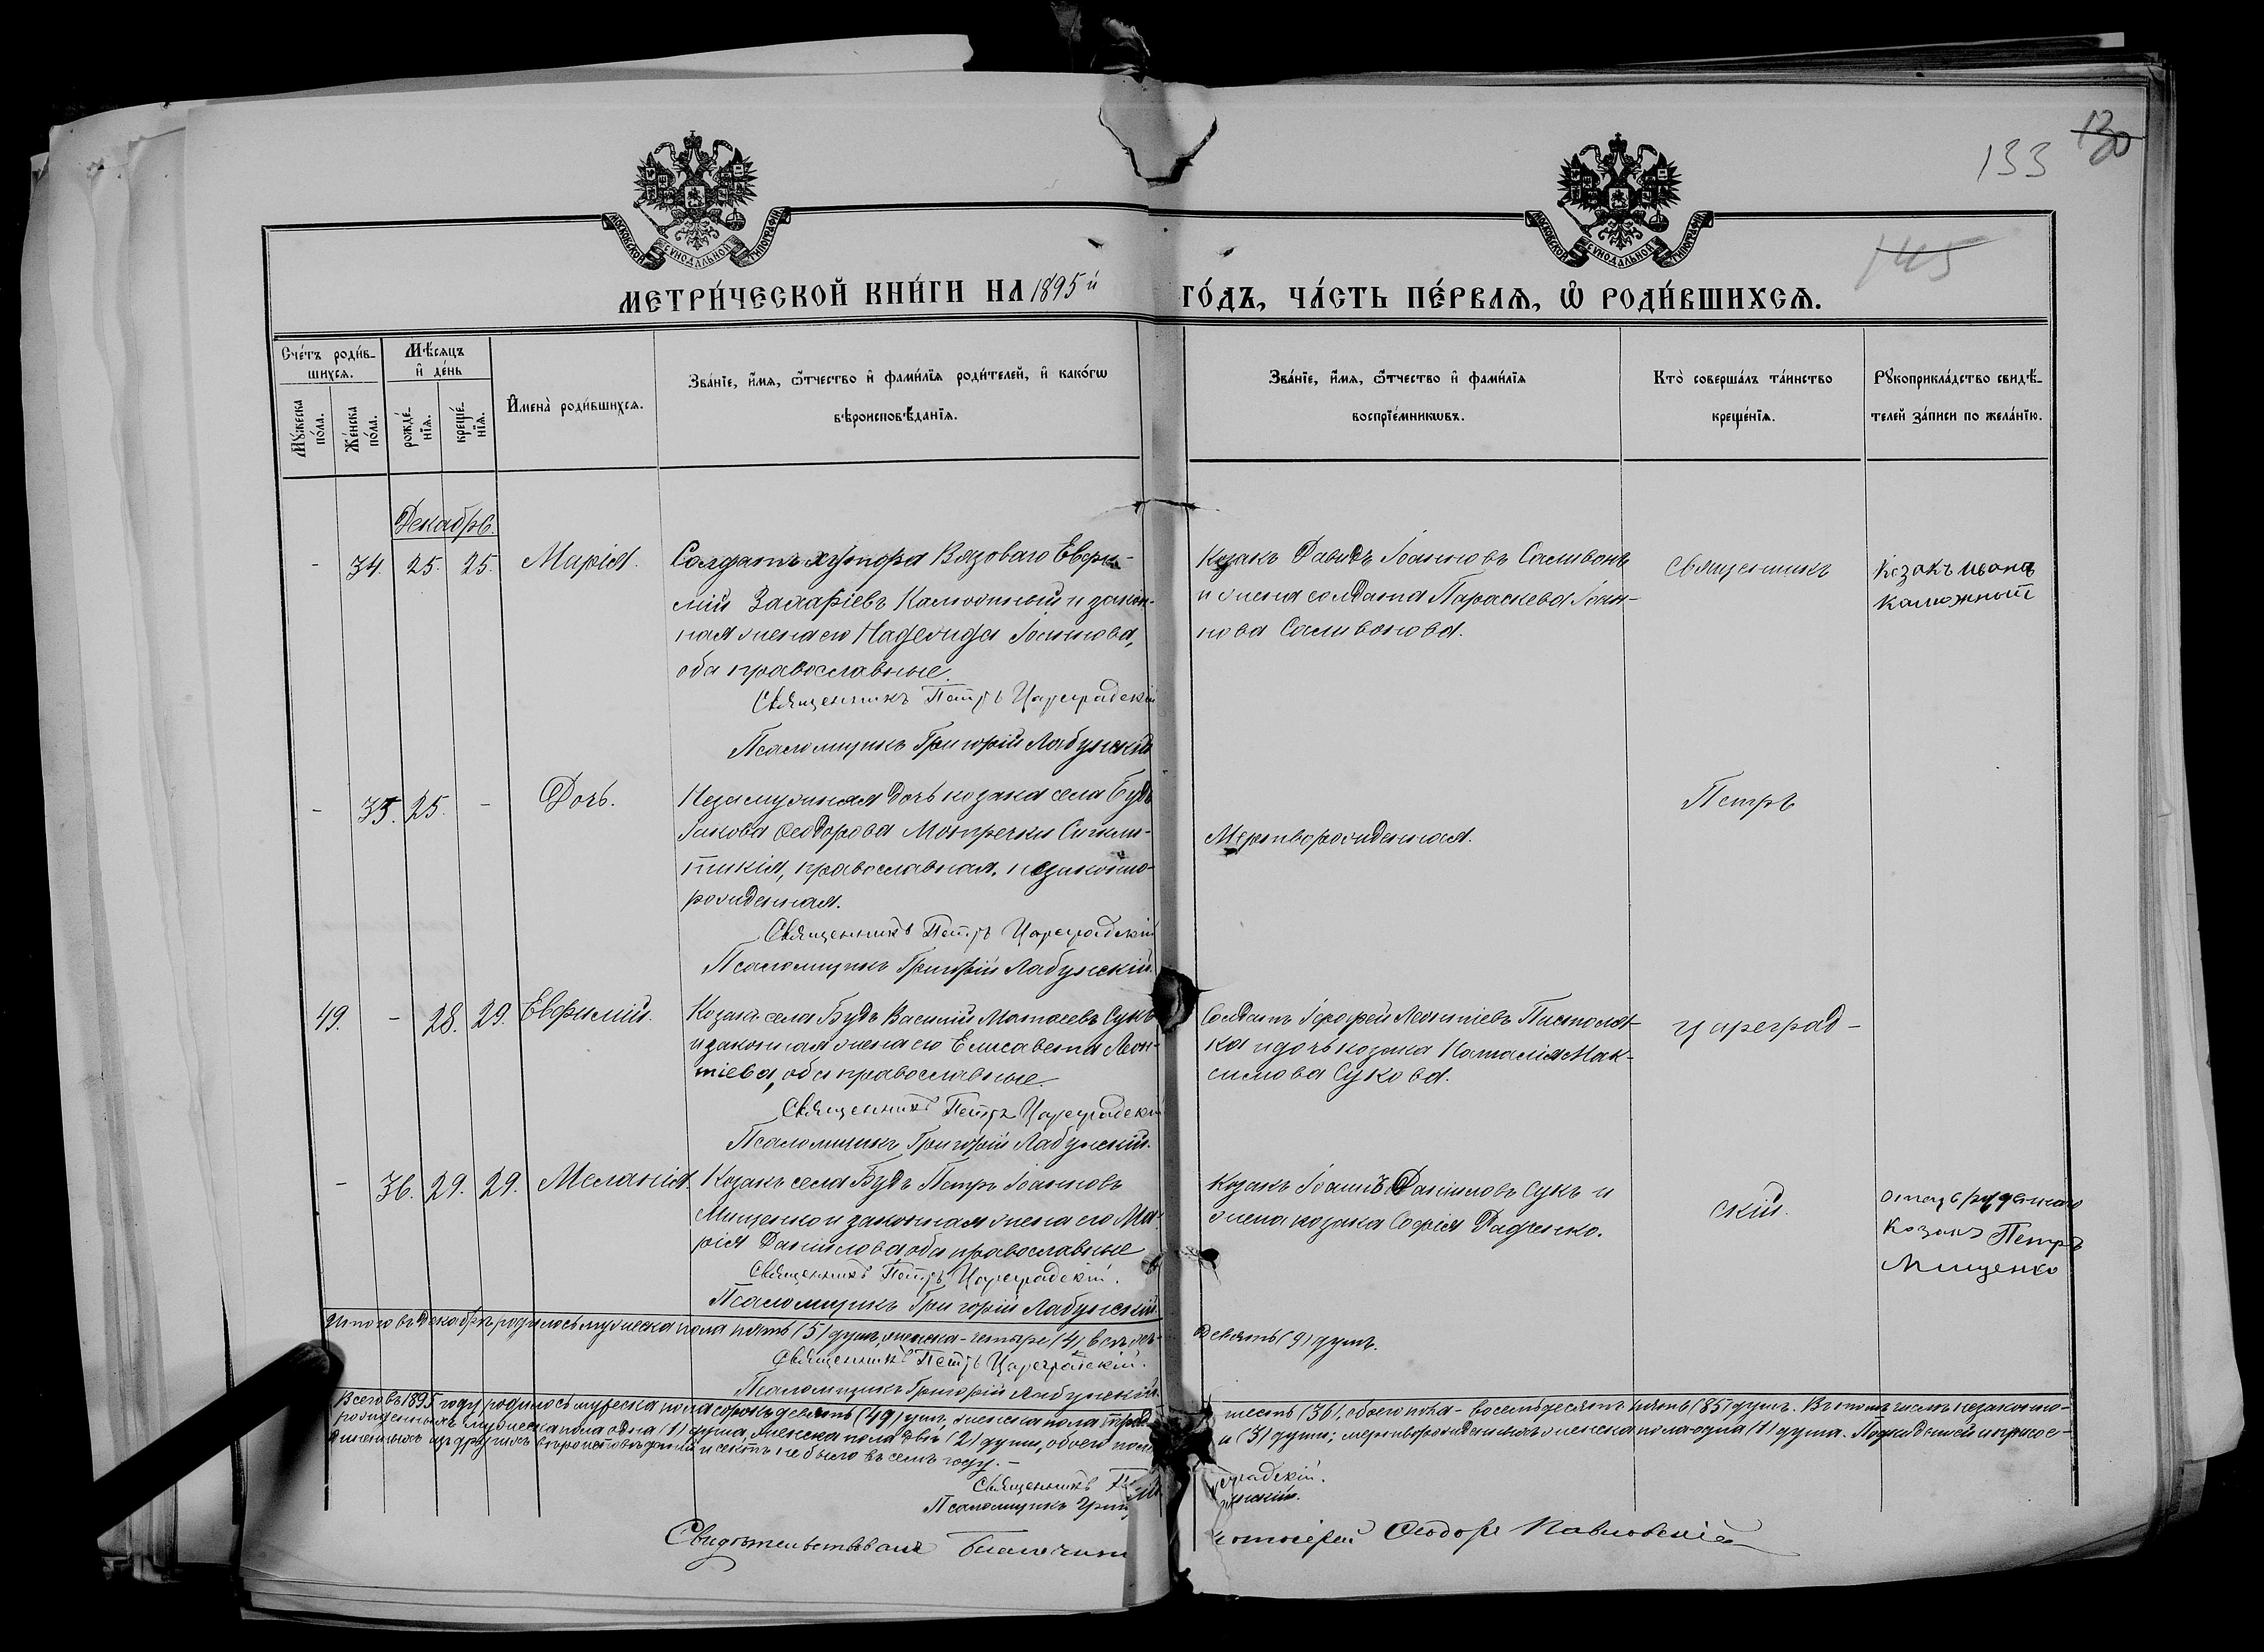 133 130
145
МОСКОВСКОЙ СѴНОДАЛЬНОЙ ТИПОГРАФІИ
МОСКОВСКОЙ СѴНОДАЛЬНОЙ ТИПОГРАФІИ
МЕТРИ́ЧЕСКОЙ КНИ́ГИ НА 1895й ГО́ДЪ, ЧА́СТЬ ПЕ́РВАЯ, Ѡ РОДИ́ВШИХСЯ.
Сче́тъ роди́в-
шихся.
Мꙋ́жеска
по́ла.
Же́нска
по́ла.
Мѣ́сяцъ
и҆ де́нь
рожде́-
нїя.
креще́-
нїя.
И҆мена̀ роди́вшихся.
Зва́нїе, и҆́мя, ѻ҆́тчество и҆ фами́лїя роди́телей, и҆ како́гѡ
вѣроисповѣ́данїя.
Зва́нїе, и҆́мя, ѻ҆́тчество и҆ фами́лїя
воспрїе́мникѡвъ.
Кто̀ соверша́лъ та́инство
креще́нїя.
Рꙋкоприкла́дство свидѣ́-
телей за́писи по жела́нїю.
Декабрь.
- 34. 25. 25. Марія.
Солдатъ хутора Вязоваго Евфи-
мій Захаріевъ Калюжный и закон-
ная жена его Надежда Іоаннова,
оба православные.
Священникъ Петръ Цареградскій
Псаломщикъ Григорій Лабунскій
Козакъ Давидъ Іоанновъ Саливонъ
и жена солдата Параскева Іоан-
нова Саливонова.
Священникъ
Козакъ Иванъ
Калюжный
- 35. 25. - Дочь.
Незамужняя дочь козака села Будъ
Іакова Ѳеодорова Мотречки Синкли-
тикія, православная. незаконно-
рожденная.
Священникъ Петръ Цареградскій
Псаломщикъ Григорій Лабунскій.
Мертворожденная.
Петръ
49. - 28. 29. Евфимій.
Козакъ села Будъ Василій Матѳеевъ Сукъ
и законная жена его Елисавета Леон-
тіева, оба православные.
Священникъ Петръ Цареградскій
Псаломщикъ Григорій Лабунскій.
Солдатъ Іероѳей Леонтіевъ Пистоля-
ка и дочь козака Наталія Мак-
симова Сукова.
Цареград-
- 36. 29. 29. Меланія.
Козакъ села Будъ Петръ Іоанновъ
Мищенко и законная жена его Ма-
рія Даніилова оба православные
Священникъ Петръ Цареградскій.
Псаломщикъ Григорій Лабунскій.
Козакъ Іоаннъ Даніиловъ Сукъ и
жена козака Софія Радченко.
скій.
отецъ
козакъ Петръ
Мищенко
Итого въ Декабрѣ родилось мужеска пола пять (5) душъ, женска - четыре (4),
девять (9) душъ.
Священникъ Петръ Цареградскій.
Псаломщикъ Григорій Лабунскій.
Всего въ 1895 году родилось мужеска пола сорокъ девять (49) душъ, женска пола трид- шесть (36), обоего пола - восемьдесятъ пять (85) душъ. Въ томъ числѣ незаконно-
рожденныхъ мужеска пола одна (1) душа, женска пола двѣ (2) души, обоего пола и (3) души; мертворожденныхъ женска пола - одна (1) душа. Подкидышей и присое-
диненныхъ изъ другихъ вѣроисповѣданій и сектъ не было въ семъ году. -
Священникъ градскій.
Псаломщикъ Григ нскій.
Свидѣтельствовалъ Благочин тоіерей Ѳеодоръ Павловскій